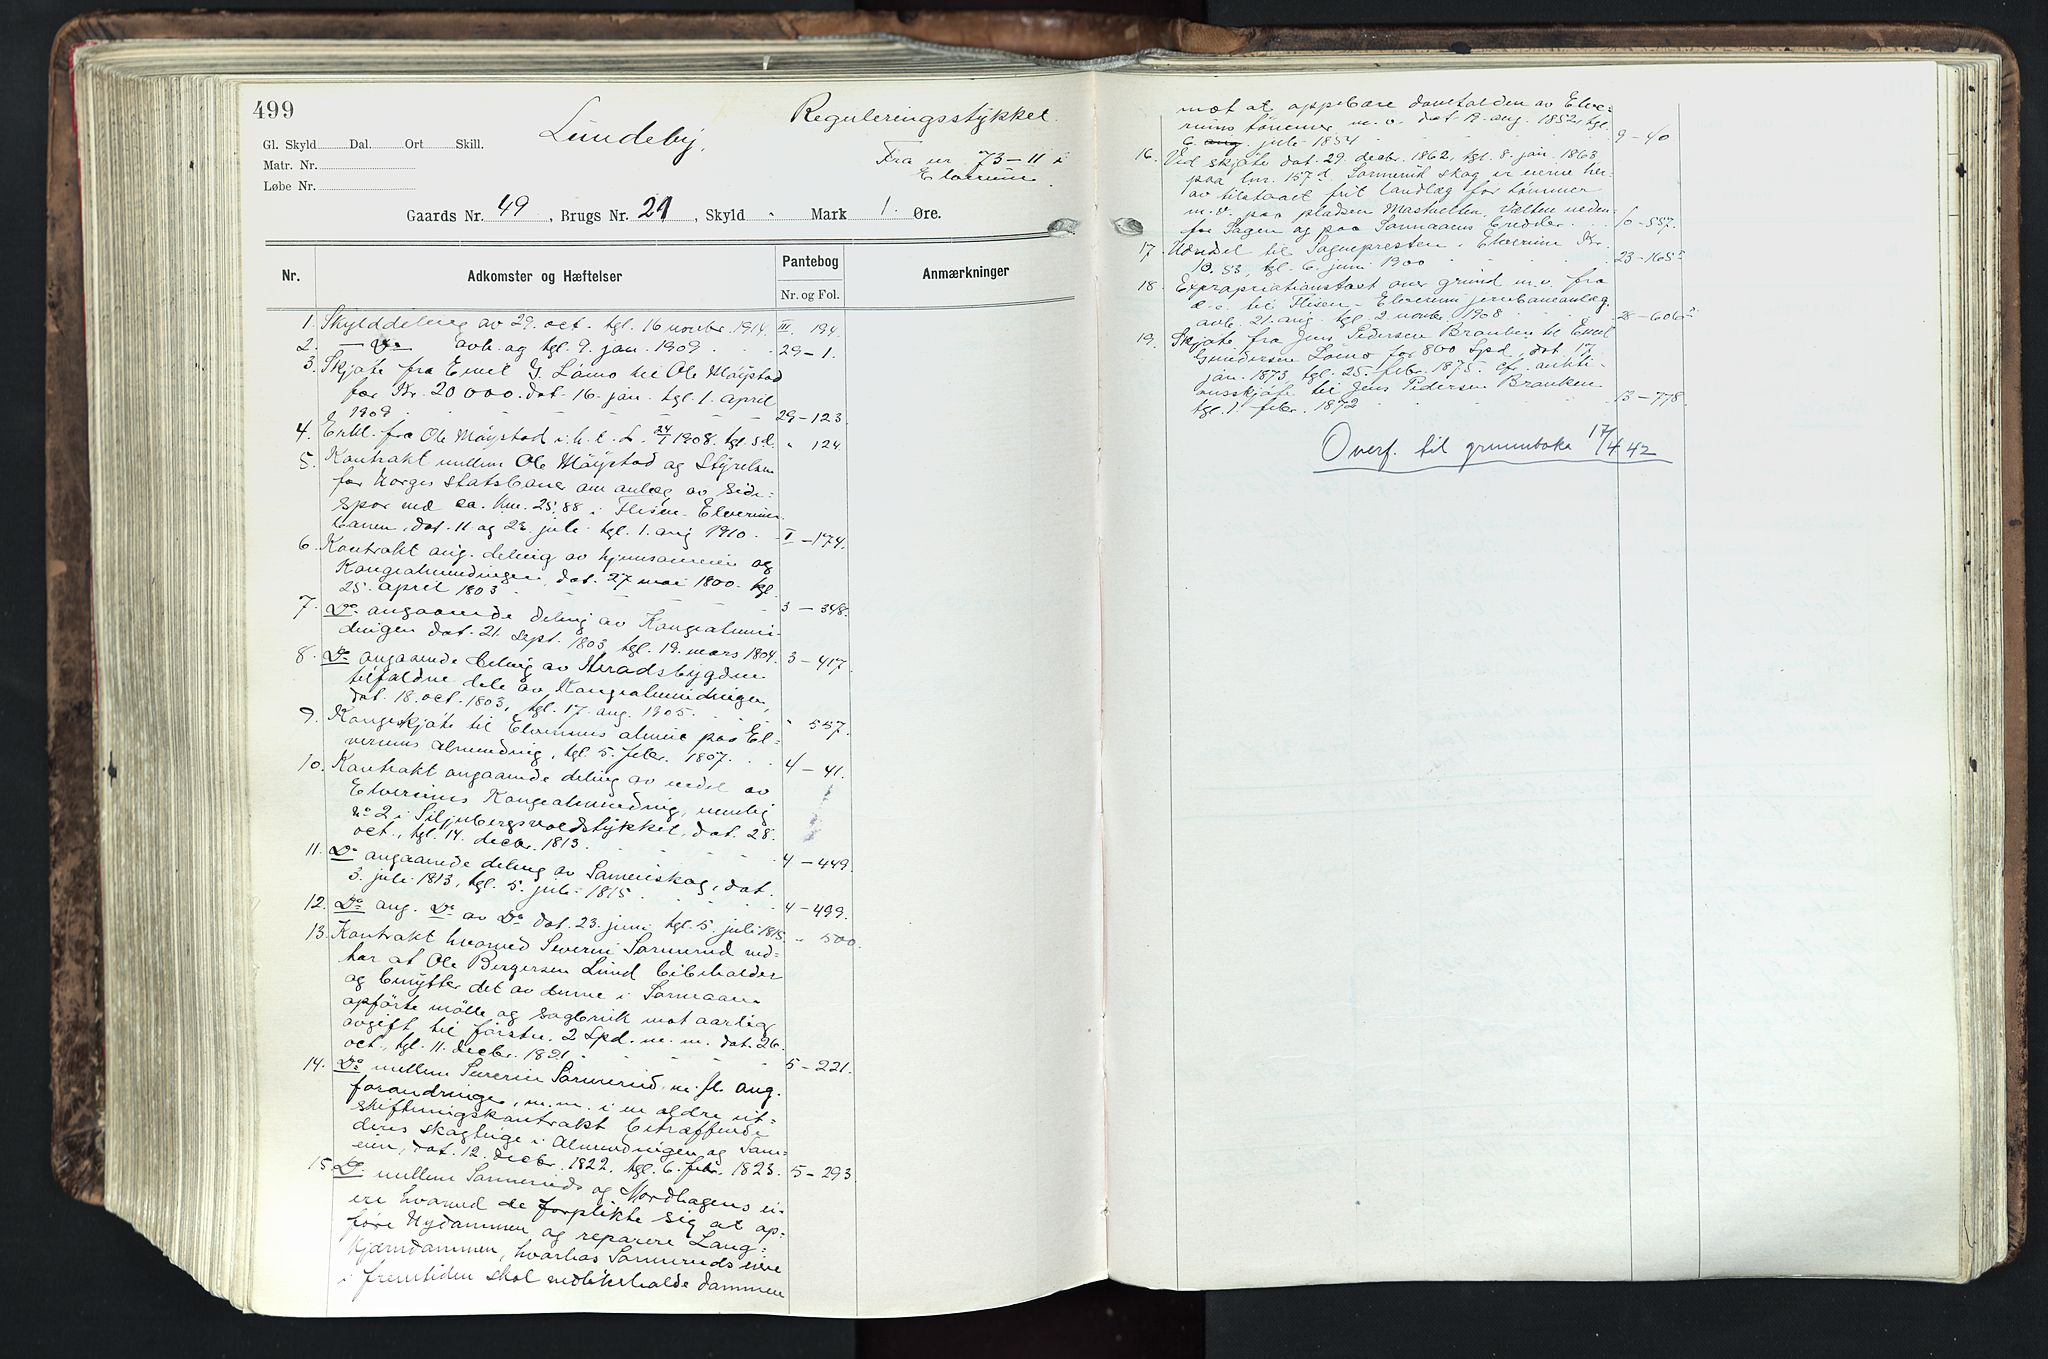 499
Lundeby.
Reguleringsstykket.
Gl. Skyld Dal. Ort Skill.
Matr. Nr.
Løbe Nr.
Fra nr. 73-11 i
Elverum.
Gaards Nr. 49, Brugs Nr. 21, Skyld - Mark 1 Øre.
Nr. Adkomster og Hæftelser Pantebog Anmærkninger
Nr. og Fol.
1. Skylddeling av 29. oct. tgl. 16 novbr. 1914. III 194.
2. — Do avh. og tgl. 9. jan. 1909 29-1.
3. Skjøte fra Emil G. Lømo til Ole Møystad
for Kr. 20 000. dat. 16. jan. tgl. 1. april
1909 29-123.
4. Erkl. fra Ole Møystad i h. t. L. 24/7 1908. tgl. s.d. " 124.
5. Kontrakt mellem Ole Møystad og Styrelsen
for Norges Statsbaner om anlæg av Side-
spor ved ca. km. 25.88 i Flisen-Elverum
banen, dat. 11 og 23. juli tgl. 1. aug. 1910. I-174.
6. Kontrakt ang. deling av hjemsameien og
Kongealmendingen, dat. 27 mai 1800. tgl.
25. april 1803 3-348.
7. Do angaaende deling av Kongealmen-
dingen dat. 21. Sept. 1803, tgl. 19. mars 1804. 3-417.
8. Do angaaende deling av Stradsbygden
tilfaldne dele av Kongealmendingen,
dat. 18. oct. 1803, tgl. 17. aug. 1905. " 557.
9. Kongeskjøte til Elverums almue paa El-
verums almending, tgl. 5. febr. 1807. 4-41.
10. Kontrakt angaaende deling av endel av
Elverums Kongealmending, nemlig
No 2 i Siljubergsvoldstykket, dat. 28.
oct., tgl. 14. decbr. 1813. 4-449.
11. Do angaaende deling av Sameiskog, dat.
3. juli 1813, tgl. 5. juli 1815. 4-499.
12. Do ang. Do av Do dat. 23. juni tgl. 5. juli 1815. " 500.
13. Kontrakt hvorved Severin Sørmerud ved-
tar at Ole Bergersen Lund bibeholder
og benytter det av denne i Sørmaaen
opførte mølle og sagbruk mot aarlig
avgift til første. 2 Spd. m. m. dat. 26.
oct., tgl. 11. decbr. 1821. 5-221.
14. Do mellem Severin Sørmerud m. fl. ang.
forandringer, m. m. i en ældre ut-
skiftningskontrakt betræffende
deres skogteige i Almendingen og Sam-
eien, dat. 12. decbr. 1822. tgl. 6. febr. 1823. 5-293
15. Do mellem Sørmeruds og Nordhagens ei-
ere hvorved de forplikte sig at op-
føre Nydammen og reparere Lang-
kjærndammen, hvorhos Sørmeruds eiere
i fremtiden skal vedlikeholde dammen
mot at oppebære damtolden av Elve-
rums tømmer m. v. dat. 19. aug. 1852, tgl.
6. aug juli 1854 9-40
16. Ved skjøte dat. 29. decbr. 1862, tgl. 8. jan. 1863
paa lnr. 157d Sørmerud skog er eierne her-
av tilstaaet frit landlæg for tømmer
m. v. paa pladsen Mastvelten, Velten neden-
for Sagen og paa Sørmaaens bredder. 10-557.
17. Utvidel til Sogneprestens i Elverum Kr.
10.83, tgl. 6. juni 1900 23-165
18. Expropriationstakst over grund m. v. fra
d. e. til Flisen-Elverum jernbaneanlæg,
avh. 21. aug. tgl. 2 novbr. 1908 28-606
19. Skjøte fra Jens Pedersen Branken til Emil
Gundersen Lømo for 800 Spd., dat. 17.
jan. 1873, tgl. 25. febr. 1875. cfr. aukti-
onsskjøte til Jens Pedersen Branken
tgl. 1. febr. 1872 13-778.
Overf. til grunnboka 17/4 42